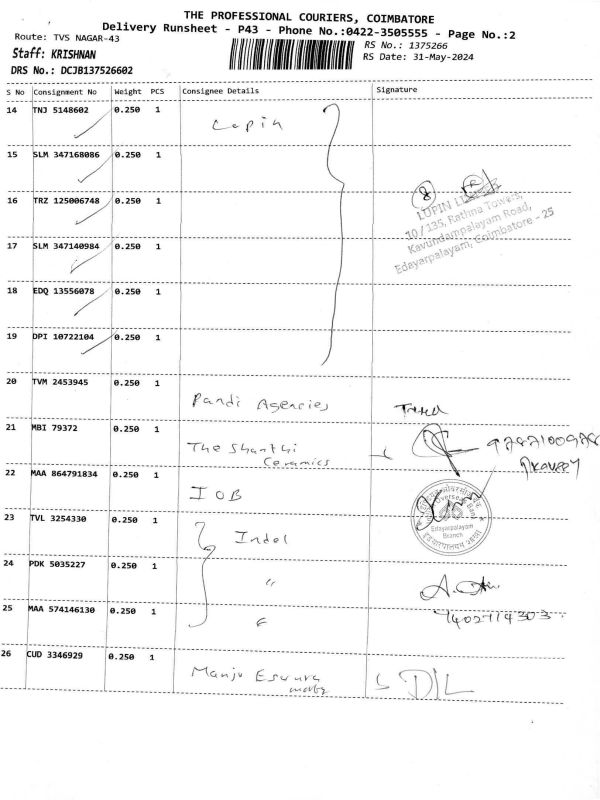 THE PROFESSIONAL COURIERS, COIMBATORE
Delivery Runsheet - P43 - Phone No.:0422-3505555 - Page No.:2
Route: TVS NAGAR-43
RS No.: 1375266
Staff: KRISHNAN
RS Date: 31-May-2024
DRS No.: DCJB137526602
S No Consignment No Weight PCS Consignee Details Signature
14 TNJ 5148602 0.250 1 Lupin
15 SLM 347168086 0.250 1
16 TRZ 125006748 0.250 1
LUPIN LIMITED
10/135, Rathna Towers,
Kavundampalayam Road,
Edayarpalayam, Coimbatore - 25
17 SLM 347140984 0.250 1
18 EDQ 13556078 0.250 1
19 DPI 10722104 0.250 1
20 TVM 2453945 0.250 1 Pandi Agencies
21 MBI 79372 0.250 1 The Shanthi
Ceramics
22 MAA 864791834 0.250 1 IOB
Overseas Bank
Edayarpalayam
Branch
23 TVL 3254330 0.250 1 Indel
24 PDK 5035227 0.250 1 "
25 MAA 574146130 0.250 1 "
7402714303
26 CUD 3346929 0.250 1 Manju Eswara
D/L